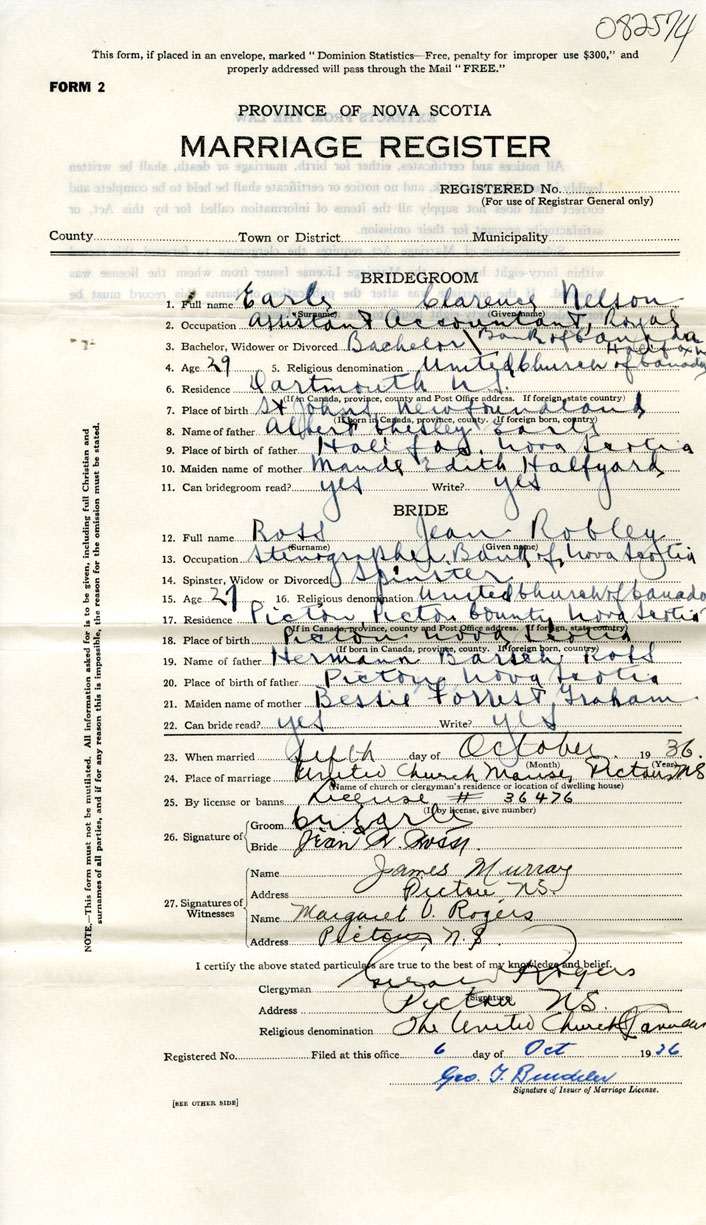 082574
This form, if placed in an envelope, marked "Dominion Statistics—Free, penalty for improper use $300," and
properly addressed will pass through the Mail "FREE."
FORM 2
PROVINCE OF NOVA SCOTIA
MARRIAGE REGISTER
REGISTERED No.
(For use of Registrar General only)
County Town or District Municipality
BRIDEGROOM
1. Full name Earle Clarence Nelson
(Surname) (Given name)
2. Occupation Assistant Accountant, Royal
Bank of Canada
Halifax
3. Bachelor, Widower or Divorced Bachelor
4. Age 29 5. Religious denomination United Church of Canada
6. Residence Dartmouth N.S.
(If in Canada, province, county and Post Office address. If foreign, state country)
7. Place of birth St Johns Newfoundland
(If born in Canada, province, county. If foreign born, country)
8. Name of father Albert Chesley Earle
9. Place of birth of father Halifax, Nova Scotia
10. Maiden name of mother Maude Edith Halfyard
11. Can bridegroom read? yes Write? yes
BRIDE
12. Full name Ross Jean Robley
(Surname) (Given name)
13. Occupation Stenographer Bank of Nova Scotia
14. Spinster, Widow or Divorced Spinster
15. Age 27 16. Religious denomination United Church of Canada
17. Residence Pictou Pictou County Nova Scotia
(If in Canada, province, county and Post Office address. If foreign, state country)
18. Place of birth Pictou Nova Scotia
(If born in Canada, province, county. If foreign born, country)
19. Name of father Hermann Ross
20. Place of birth of father Pictou Nova Scotia
21. Maiden name of mother Bessie Forrest Graham
22. Can bride read? yes Write? yes
23. When married fifth day of October 1936.
(Month) (Year)
24. Place of marriage United Church Manse, Pictou NS
(Name of church or clergyman's residence or location of dwelling house)
25. By license or banns License # 36476
(If by license, give number)
26. Signature of
Groom
Bride Jean R. Ross.
27. Signatures of Witnesses
Name James Murray
Address Pictou N.S.
Name Margaret V. Rogers
Address Pictou, N.S.
I certify the above stated particulars are true to the best of my knowledge and belief.
Clergyman Rogers
(Signature)
Address Pictou NS.
Religious denomination The United Church of Canada
Registered No. Filed at this office 6 day of Oct 1936
Geo. T.
Signature of Issuer of Marriage License.
[SEE OTHER SIDE]
NOTE.—This form must not be mutilated. All information asked for is to be given, including full Christian and
surnames of all parties, and if for any reason this is impossible, the reason for the omission must be stated.